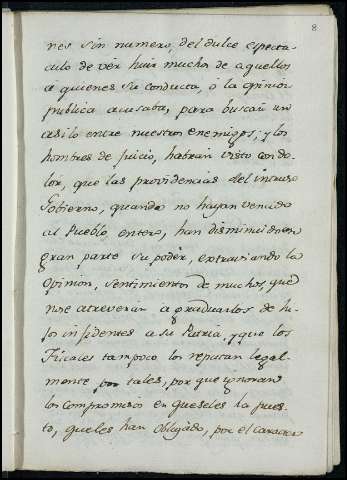 8
nes sin numero, del dulce especta-
culo de vér huir muchos de aquellos
á quienes su conducta, ó la opinion
publica acusaba, para buscar un
asilo entre nuestros enemigos; y los
hombres de juicio, habrán visto con do-
lor, que las providencias del intruso
Gobierno, quando no hayan vencido
al Pueblo entero, han disminuido en
gran parte su poder, extraviando la
Opinion, y sentimientos de muchos, que
no se atreveran a graduarlos de hi-
jos infidentes a su Patria, y que los
Fiscales tampoco los reputan legal-
mente por tales, por que ignoran
los compromisos en que se les ha pues-
to, que les han obligado, por el caracter